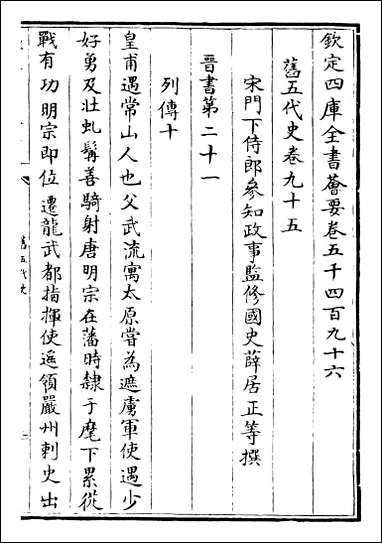 欽定四庫全書薈要卷五千四百九十六
舊五代史卷九十五
宋門下侍郎參知政事監修國史薛居正等撰
晉書第二十一
列傳十
皇甫遇常山人也父武流寓太原嘗為遮虜軍使遇少
好勇及壯虬髯善騎射唐明宗在藩時隸于麾下累從
戰有功明宗即位遷龍武都指揮使遙領嚴州刺史出
舊五代史